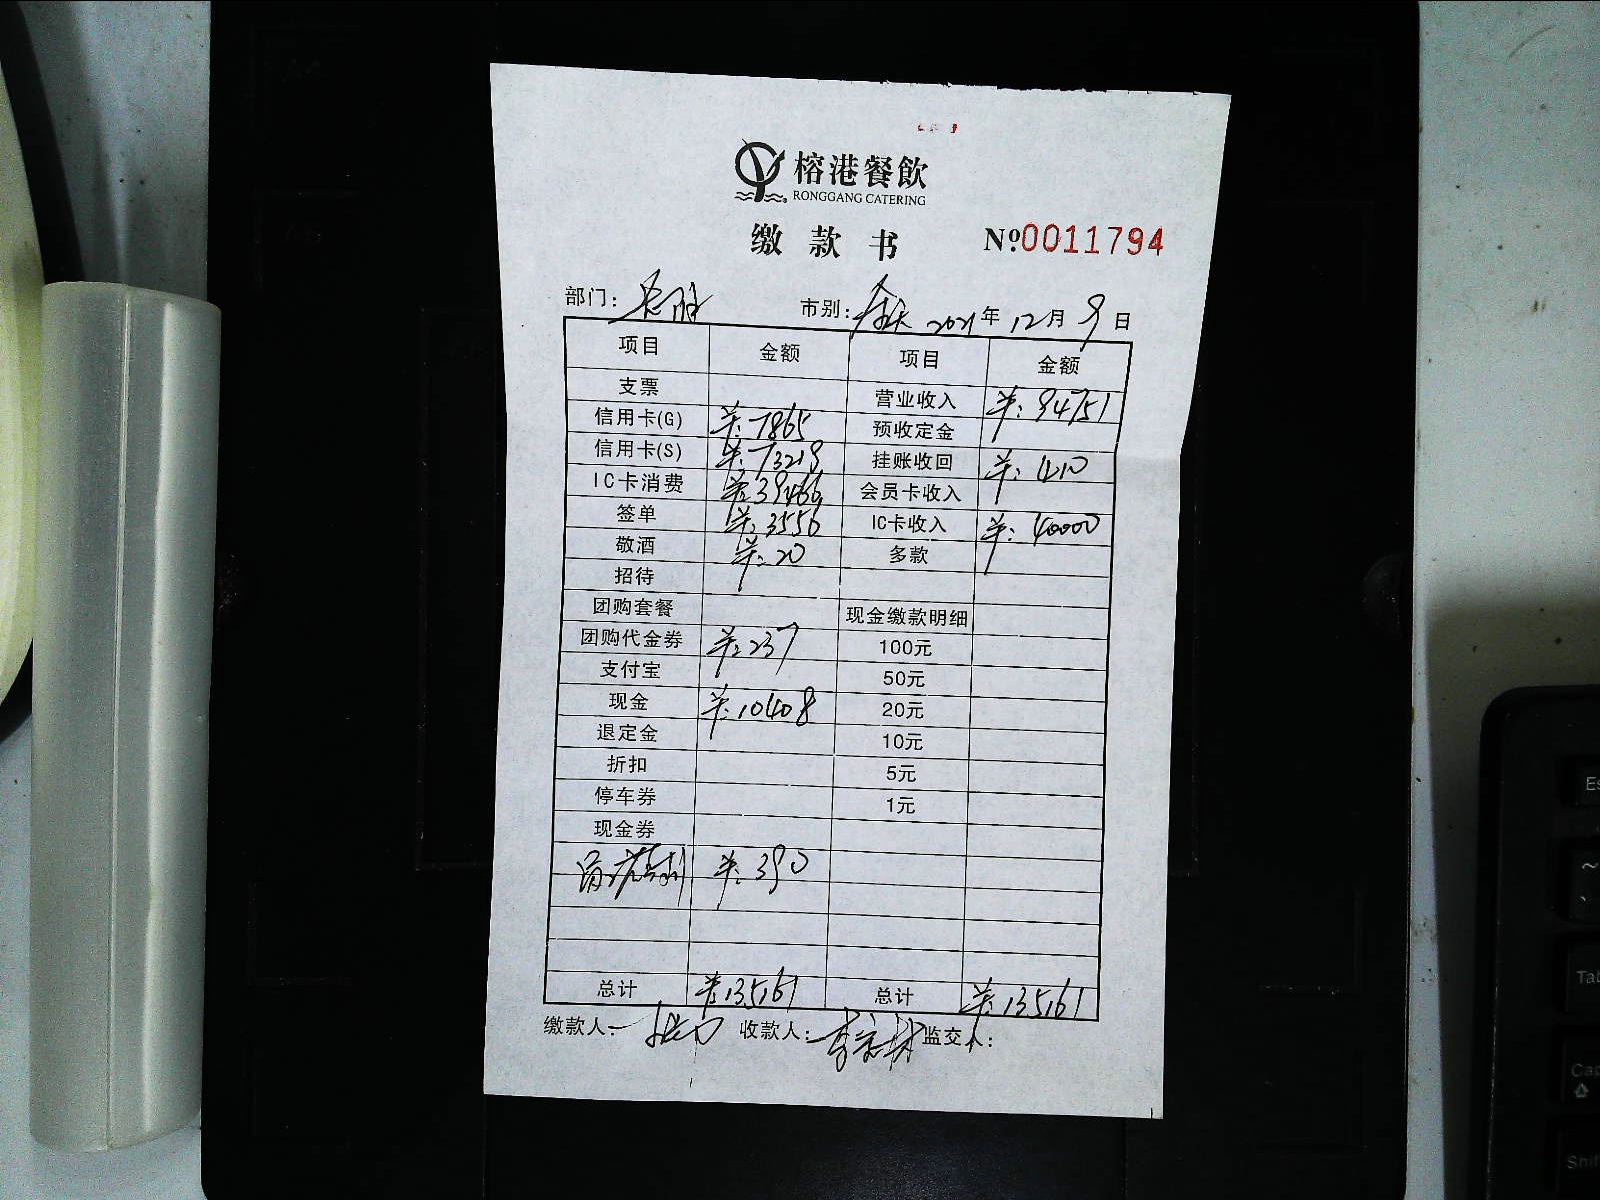 榕港餐飲
RONGGANG CATERING
缴款书 Nº0011794
部门: 市别: 全天 2021年12月9日
项目 金额 项目 金额
支票 营业收入 ¥:94751
信用卡(G) ¥:7865 预收定金
信用卡(S) ¥:73219 挂账收回 ¥:410
IC卡消费 ¥:39466 会员卡收入
签单 ¥:3556 IC卡收入 ¥:40000
敬酒 ¥:20 多款
招待
团购套餐 现金缴款明细
团购代金券 ¥:237 100元
支付宝 50元
现金 ¥:10408 20元
退定金 10元
折扣 5元
停车券 1元
现金券
¥:390
总计 ¥:135161 总计 ¥:135161
缴款人: 收款人: 监交人:
Es
~
Tab
Cap
Shift